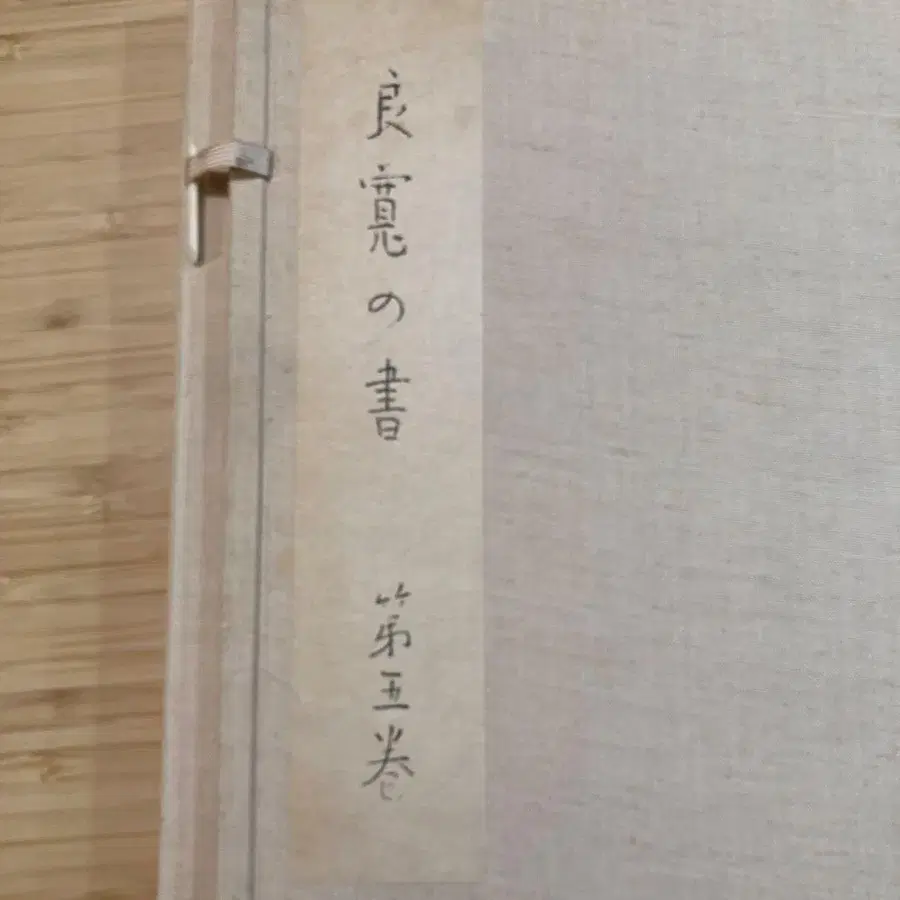 良寛の書 第五巻